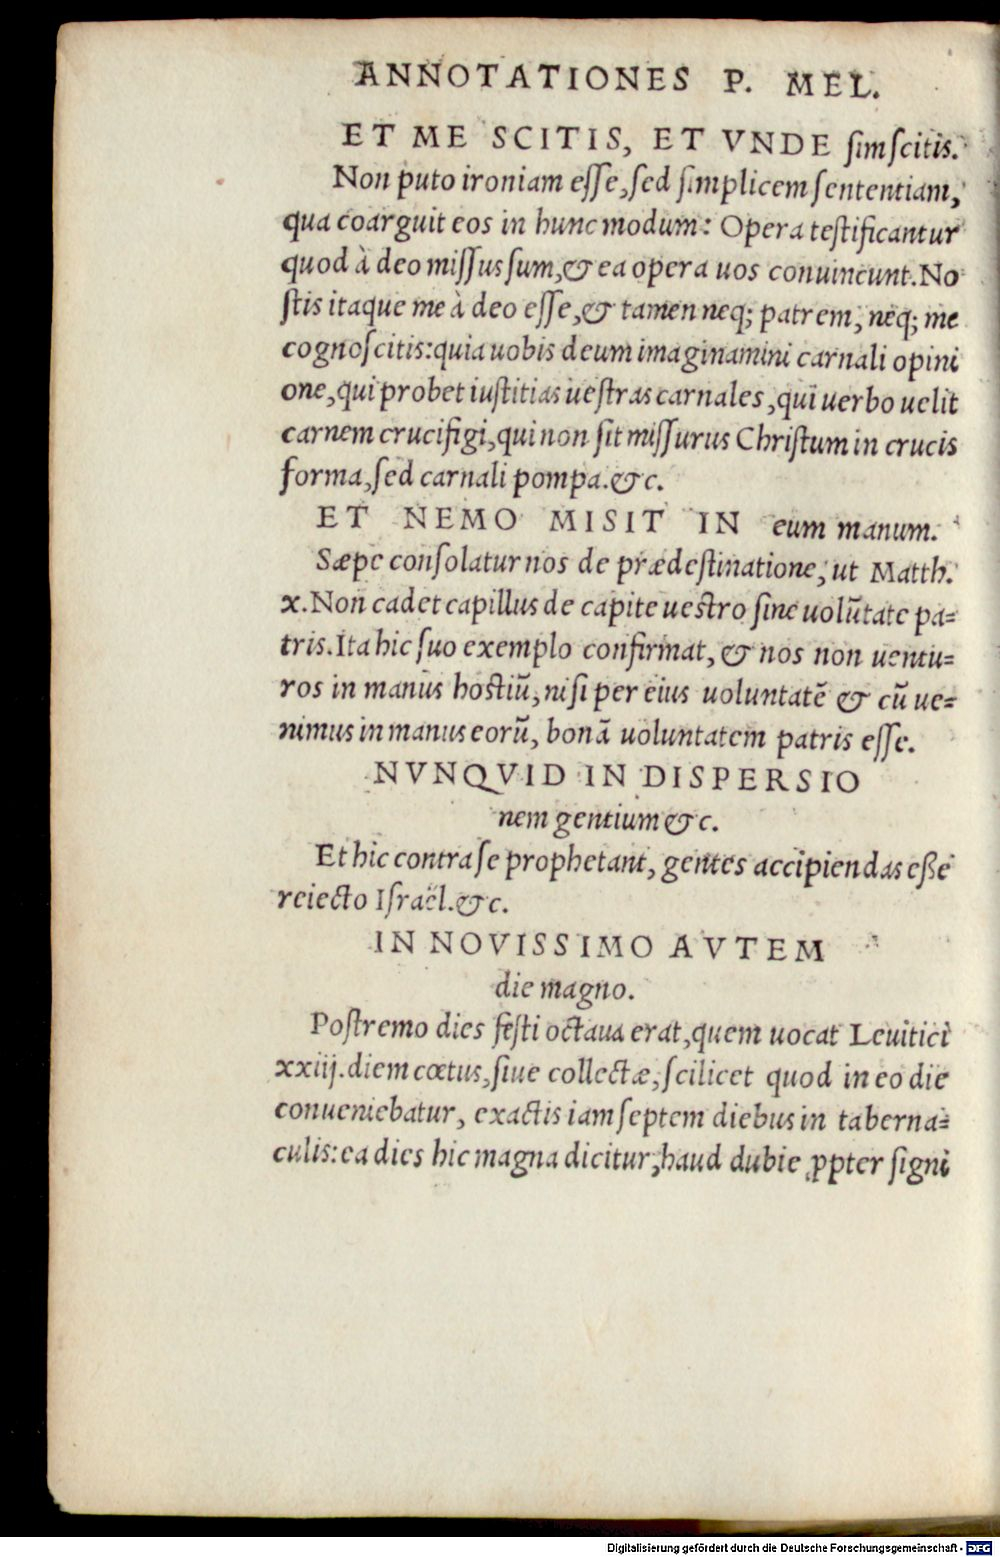 ANNOTATIONES P. MEL.
ET ME SCITIS, ET VNDE ſim ſcitis.
Non puto ironiam eſſe, ſed ſimplicem ſententiam,
qua coarguit eos in hunc modum: Opera teſtificantur
quod à deo miſſus ſum, & ea opera uos conuincunt. No
ſtis itaque me à deo eſſe, & tamen neq; patrem, neq; me
cognoſcitis: quia uobis deum imaginamini carnali opini
one, qui probet iuſtitias ueſtras carnales, qui uerbo uelit
carnem crucifigi, qui non ſit miſſurus Chriſtum in crucis
forma, ſed carnali pompa. &c.
ET NEMO MISIT IN eum manum.
Sæpe conſolatur nos de prædeſtinatione, ut Matth.
x. Non cadet capillus de capite ueſtro ſine uolũtate pa=
tris. Ita hic ſuo exemplo confirmat, & nos non uentu=
ros in manus hoſtiũ, niſi per eius uoluntatẽ & cũ ue=
nimus in manus eorũ, bonã uoluntatem patris eſſe.
NVNQVID IN DISPERSIO
nem gentium &c.
Et hic contra ſe prophetant, gentes accipiendas eße
reiecto Iſraël. &c.
IN NOVISSIMO AVTEM
die magno.
Poſtremo dies feſti octaua erat, quem uocat Leuitici
xxiij. diem cœtus, ſiue collectæ, ſcilicet quod in eo die
conueniebatur, exactis iam ſeptem diebus in taberna=
culis: ea dies hic magna dicitur, haud dubie ꝓpter ſigni
Digitalisierung gefördert durch die Deutsche Forschungsgemeinschaft - DFG